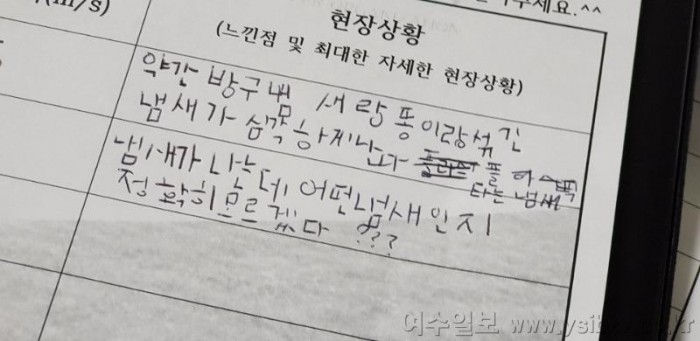 주세요.^^
(m/s)
현장상황
(느낀점 및 최대한 자세한 현장상황)
약간 방구냄새랑 똥이랑섞긴
냄새가 심각하게난다
타는 냄새
냄새가 나는데 어떤냄새인지
정확히모르겠다 ???
여수일보 www.ysi